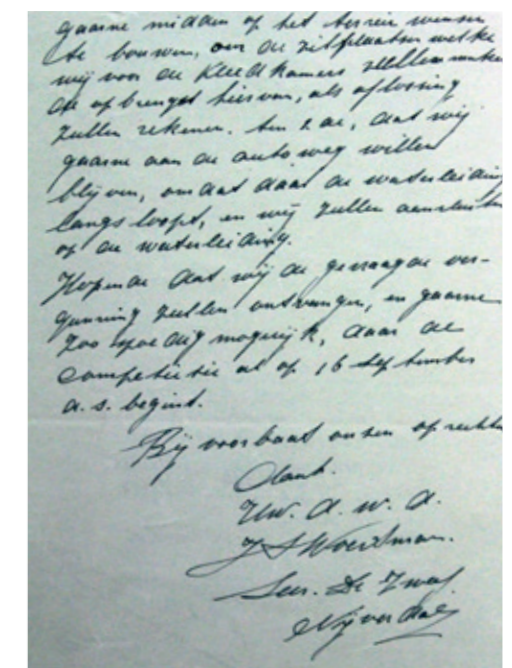 gaarne midden op het terrein wensen
te bouwen, om de zitplaatsen welke
wij voor de Kleedkamers zullen maken
de opbrengst hiervan, als aflossing
zullen rekenen. ten 2 de, dat wij
gaarne aan de autoweg willen
blijven, omdat daar de waterleiding
langs loopt, en wij zullen aansluiten
op de waterleiding.
Hopende dat wij de gevraagde ver-
gunning zullen ontvangen, en gaarne
zoo spoedig mogelijk, daar de
competitie al op 16 September
a.s. begint.
Bij voorbaat onzen oprechten
dank.
Uw. d. w. d.
Secr. De Zweef
Nijverdal